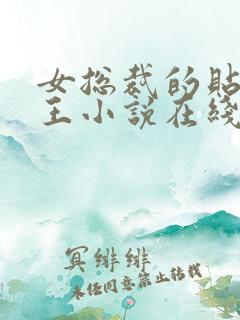 女总裁的贴
王小说在线
冥绯绯
未经同意禁止转载